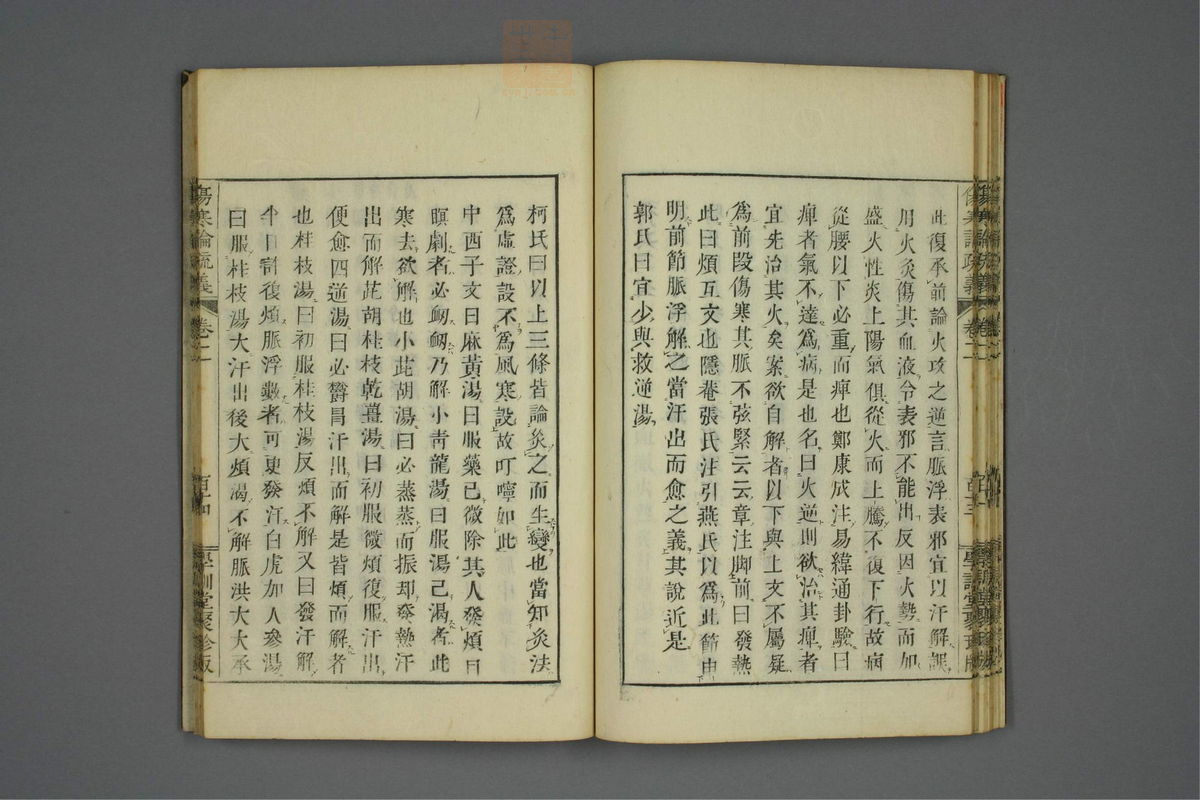 此復承前論火攻之逆言脈浮表邪宜以汗解誤
用火灸傷其血液令表邪不能出反因火勢而加
盛火性炎上陽氣俱從火而上騰不復下行故病
從腰以下必重而痺也鄭康成注易緯通卦驗曰
痺者氣不達爲病是也名曰火逆則欲治其痺者
宜先治其火矣案欲自解者以下與上文不屬疑
爲前段傷寒其脈不弦緊云云章注脚前曰發熱
此曰煩互文也隱菴張氏注引燕氏以爲此節申
明前節脈浮解之當汗出而愈之義其說近是
郭氏曰宜少與救逆湯
傷寒論疏義
卷二
百十三
學訓堂聚珍版
柯氏曰以上三條皆論灸之而生變也當知灸法
爲虛證設不爲風寒設故叮嚀如此
中西子文曰麻黃湯曰服藥已微除其人發煩目
瞑劇者必衂衂乃解小靑龍湯曰服湯已渴者此
寒去欲解也小茈胡湯曰必蒸蒸而振却發熱汗
出而解茈胡桂枝乾薑湯曰初服微煩復服汗出
便愈四逆湯曰必欝冒汗出而解是皆煩而解者
也桂枝湯曰初服桂枝湯反煩不解又曰發汗解
半日許復煩脈浮數者可更發汗白虎加人參湯
曰服桂枝湯大汗出後大煩渴不解脈洪大大承
傷寒論疏義
卷二
百十四
學訓堂聚珍版